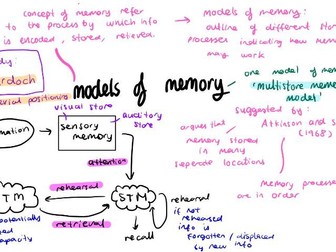 concept of memory refer
to the process by which info
is encoded, stored, retieved.
models of memory:
outline of different
processes indicating how
may work
models of memory
one model of
'multistore
model'
suggested by:
Atkinson and
(1968)
argues that
memory
stored
in many
seperate locations
memory
are in order
positioning
visual store
auditory
store
sensory
memory
attention
rehearsal
retrieval
STM
TM
recall
rehearsal
if not
rehearsed
info is
forgotten / displaced
by new info